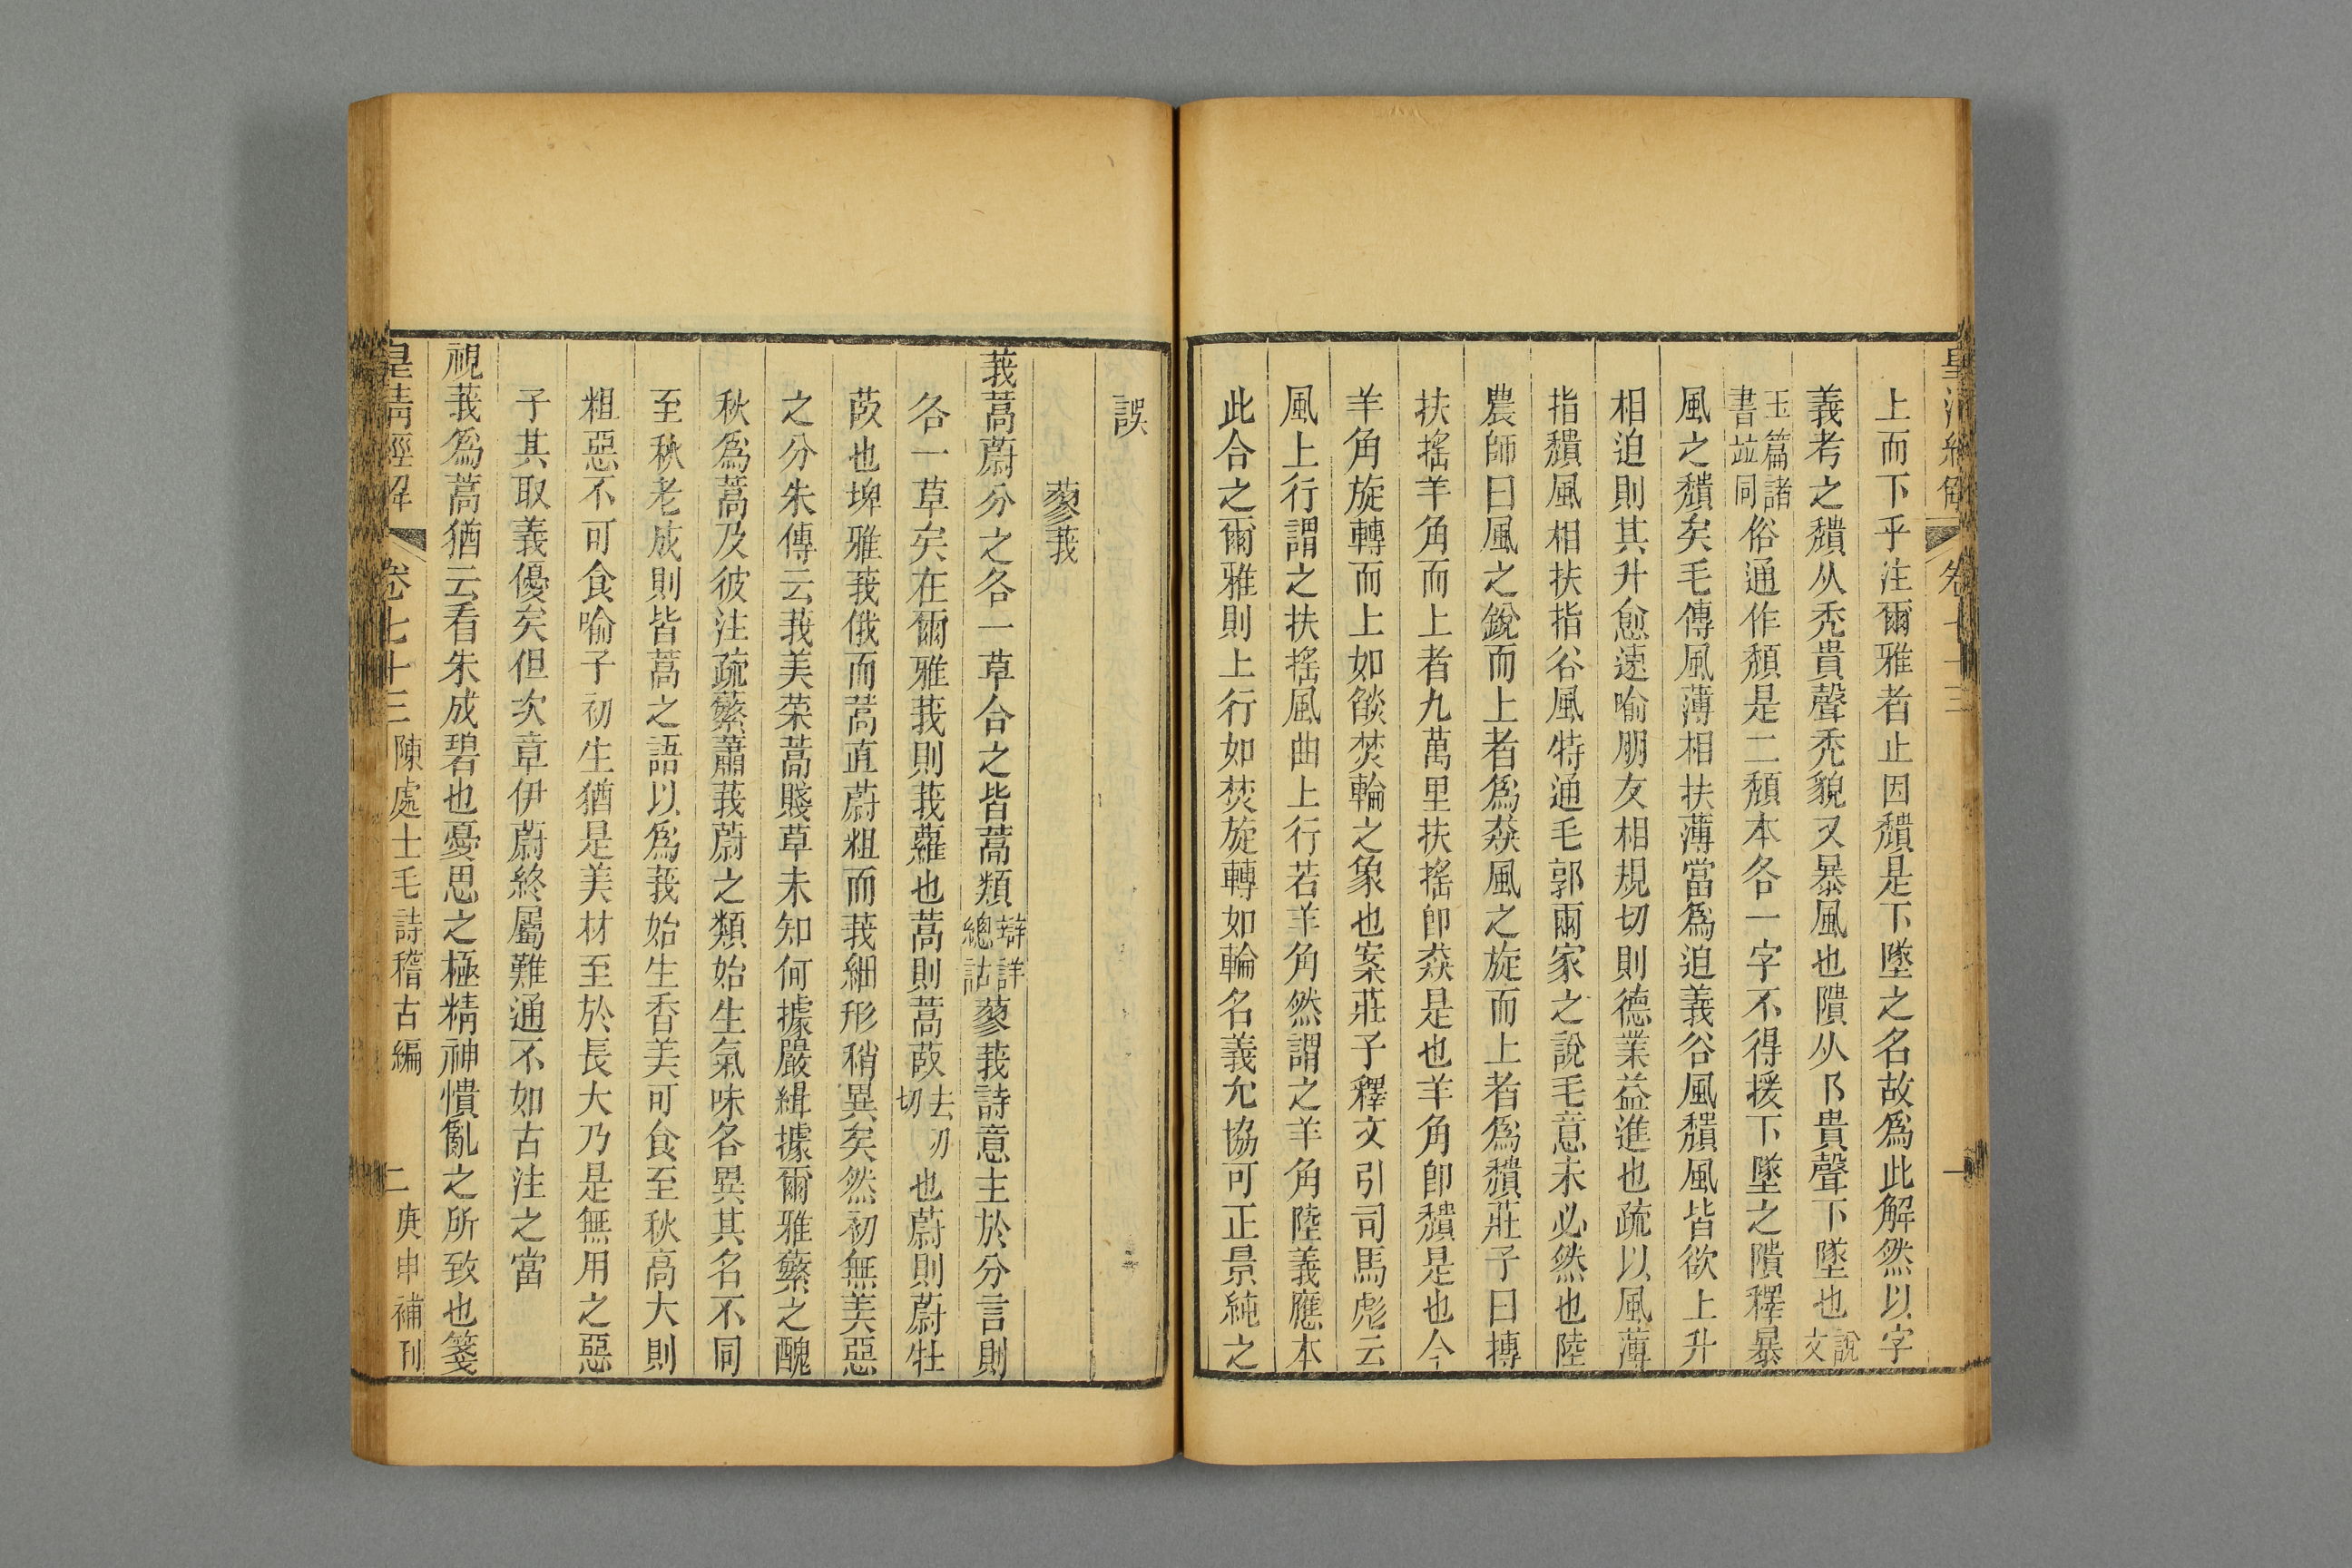 皇清經解 卷七十三 一
上而下乎注爾雅者止因穨是下墜之名故爲此解然以字
義考之穨从禿貴聲禿貌又暴風也隤从𨸏貴聲下墜也說文
玉篇諸書竝同俗通作頹是二頹本各一字不得援下墜之隤釋暴
風之穨矣毛傳風薄相扶薄當爲迫義谷風穨風皆欲上升
相迫則其升愈速喻朋友相規切則德業益進也疏以風薄
指穨風相扶指谷風特通毛郭爾家之說毛意未必然也陸
農師曰風之銳而上者爲猋風之旋而上者爲穨莊子曰摶
扶搖羊角而上者九萬里扶搖卽猋是也羊角卽穨是也今
羊角旋轉而上如燄焚輪之象也案莊子釋文引司馬彪云
風上行謂之扶搖風曲上行若羊角然謂之羊角陸義應本
此合之爾雅則上行如焚旋轉如輪名義允協可正景純之
誤
蓼莪
莪蒿蔚分之各一草合之皆蒿類辯詳總詁蓼莪詩意主於分言則
各一草矣在爾雅莪則莪蘿也蒿則蒿菣去刃切也蔚則蔚牡
菣也埤雅莪俄而蒿直蔚粗而莪細形稍異矣然初無美惡
之分朱傳云莪美菜蒿賤草未知何據嚴緝據爾雅蘩之醜
秋爲蒿及彼注疏蘩蕭莪蔚之類始生氣味各異其名不同
至秋老成則皆蒿之語以爲莪始生香美可食至秋高大則
粗惡不可食喻子初生猶是美材至於長大乃是無用之惡
子其取義優矣但次章伊蔚終屬難通不如古注之當
視莪爲蒿猶云看朱成碧也憂思之極精神憒亂之所致也箋
皇清經解 卷七十三 陳處士毛詩稽古編 二 庚申補刊